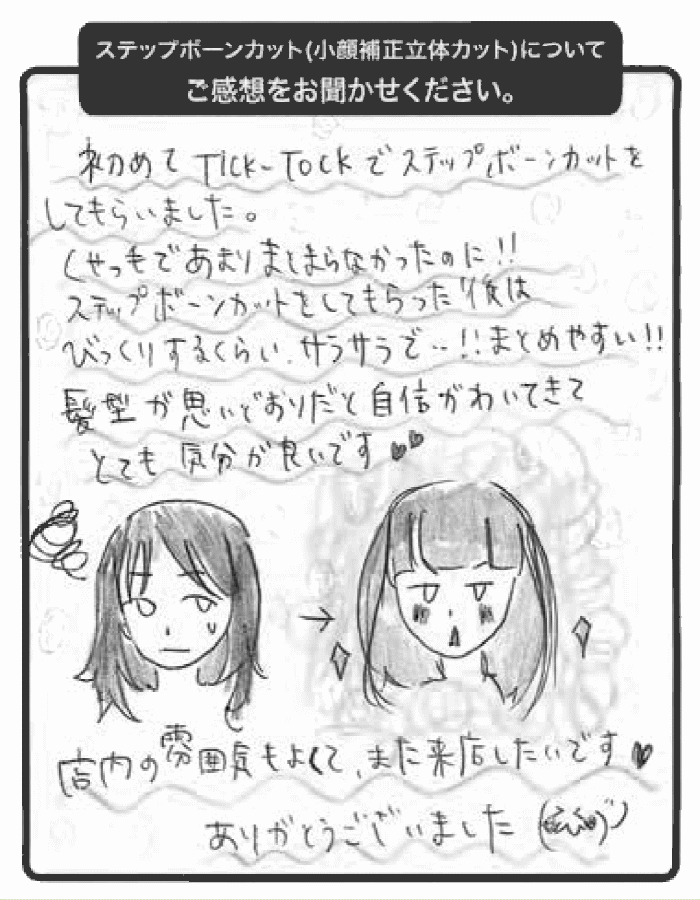 ステップボーンカット(小顔補正立体カット)について
ご感想をお聞かせください。
初めて TICK-TOCKでステップボーンカットを
してもらいました。
くせっ毛であまりまとまらなかったのに!!
ステップボーンカットをしてもらった後は
びっくりするくらい、サラサラで‥!!まとめやすい!!
髪型が思いどおりだと自信がわいてきて
とても気分が良いです♥♥
店内の雰囲気もよくて、また来店したいです♥
ありがとうございました